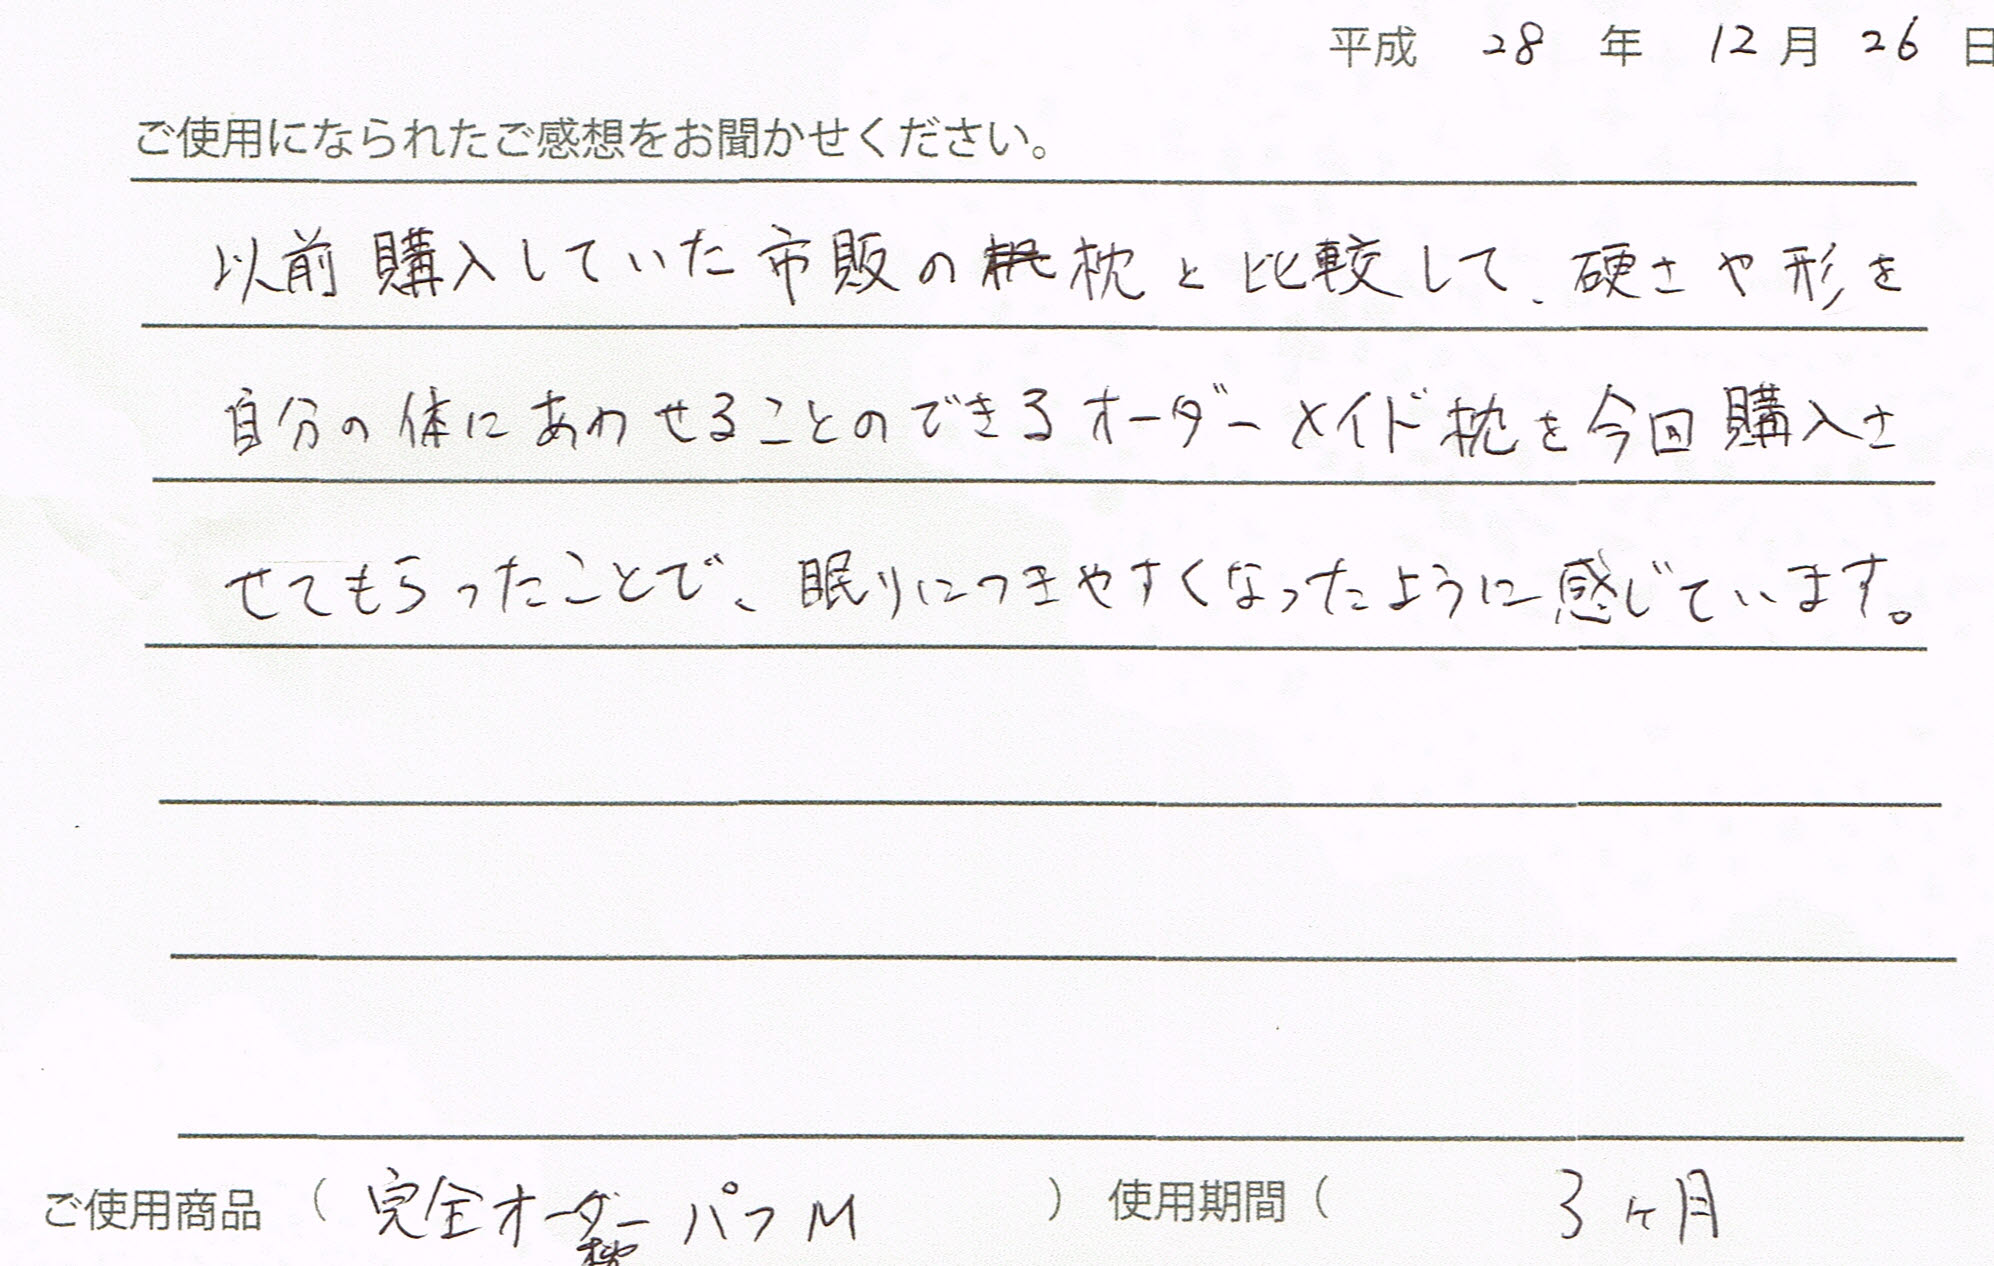 平成 28 年 12 月 26 日
ご使用になられたご感想をお聞かせください。
以前購入していた市販の枕と比較して、硬さや形を
自分の体にあわせることのできるオーダーメイド枕を今回購入さ
せてもらったことで、眠りにつきやすくなったように感じています。
ご使用商品 ( 完全オーダー パフ M ) 使用期間 ( 3ヶ月